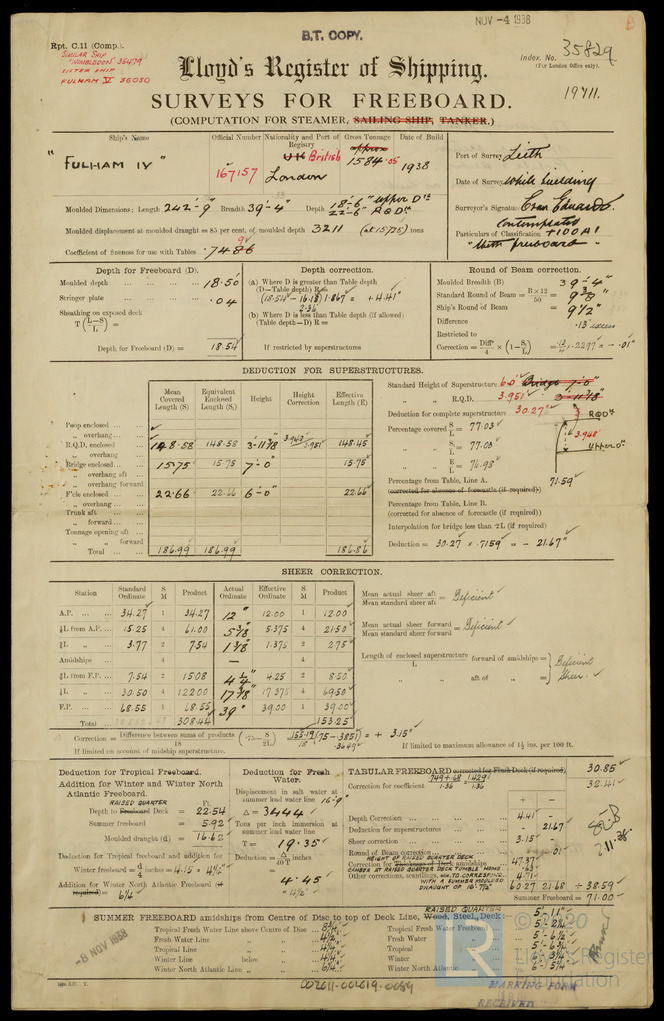 NOV -4 1938
B.T. COPY.
Rpt. C.11 (Comp.).
SIMILAR SHIP
"WIMBLEDON" 35479
SISTER SHIP
FULHAM V 36030
Index. No. 35829
(For London Office only).
Lloyd's Register of Shipping.
19711.
SURVEYS FOR FREEBOARD.
(COMPUTATION FOR STEAMER, SAILING SHIP, TANKER.)
Ship's Name
Official Number
Nationality and Port of Registry
Gross Tonnage
Date of Build
"FULHAM IV"
167157
UK British
London
approx
1584.05
1938
Port of Survey Leith
Date of Survey While building
Surveyor's Signature Evan Edwards
Contemplated
Particulars of Classification +100A1
"With freeboard"
Moulded Dimensions: Length 242'-9" Breadth 39'-4" Depth 18'-6" Upper Dk
22'-6" R.Q.Dk
Moulded displacement at moulded draught = 85 per cent. of moulded depth 3211 (at 15.725) tons
Coefficient of fineness for use with Tables .7486
Depth for Freeboard (D).
Moulded depth ... 18.50
Stringer plate ... .04
Sheathing on exposed deck
T(L-S/L) =
Depth for Freeboard (D) = 18.54
Depth correction.
(a) Where D is greater than Table depth
(D-Table depth) R=
(18.54 - 16.18) 1.867 = +4.41"
2.36
(b) Where D is less than Table depth (if allowed)
(Table depth-D) R =
If restricted by superstructures
Round of Beam correction.
Moulded Breadth (B) 39'-4"
Standard Round of Beam = B×12/50 = 9 3/8"
Ship's Round of Beam = 9 1/2"
Difference .13 excess
Restricted to
Correction = Diffce/4 × (1-S1/L) = .13/4 × .2297 = - .01"
DEDUCTION FOR SUPERSTRUCTURES.
Mean Covered Length (S)
Equivalent Enclosed Length (S1)
Height
Height Correction
Effective Length (E)
Poop enclosed
" overhang
R.Q.D. enclosed 148.58 148.58 3'-11 3/8 3.948/3.951 148.45
" overhang
Bridge enclosed 15.75 15.75 7'-0" 15.75
" overhang aft
" overhang forward
F'cle enclosed 22.66 22.66 6'-0" 22.66
" overhang
Trunk aft
" forward
Tonnage opening aft
" " forward
Total 186.99 186.99 186.86
Standard Height of Superstructure 6.0' Bridge 7'-0"
" " R.Q.D. 3.951 3'-11 3/8
Deduction for complete superstructure 30.27"
Percentage covered S/L = 77.03
" " S1/L = 77.03
" " E/L = 76.98
R.Q.Dk
3.948'
Upper Dk
Percentage from Table, Line A. 71.59
(corrected for absence of forecastle (if required))
Percentage from Table, Line B.
(corrected for absence of forecastle (if required))
Interpolation for bridge less than ·2L (if required)
Deduction = 30.27 × .7159 = - 21.67"
SHEER CORRECTION.
Station
Standard Ordinate
S M
Product
Actual Ordinate
Effective Ordinate
S M
Product
A.P. 34.27 1 34.27 12" 12.00 1 12.00
⅙L from A.P. 15.25 4 61.00 5 3/8 5.375 4 21.50
⅓L " 3.77 2 7.54 1 3/8 1.375 2 2.75
Amidships 4 — 4
⅓L from F.P. 7.54 2 15.08 4 1/4" 4.25 2 8.50
⅙L " 30.50 4 122.00 17 3/8 17.375 4 69.50
F.P. 68.55 1 68.55 39" 39.00 1 39.00
Total 308.44 153.25
Mean actual sheer aft / Mean standard sheer aft = Deficient
Mean actual sheer forward / Mean standard sheer forward = Deficient
Length of enclosed superstructure/L forward of amidships = Deficient
" " aft of " = Sheer.
Correction = Difference between sums of products/18 (·75-S/2L) = 155.19/18 (.75-.3851) = + 3.15"
.3649
If limited on account of midship superstructure.
If limited to maximum allowance of 1½ ins. per 100 ft.
Deduction for Tropical Freeboard.
Addition for Winter and Winter North Atlantic Freeboard.
RAISED QUARTER Ft.
Depth to Freeboard Deck = 22.54
Summer freeboard = 5.92
Moulded draught (d) = 16.62
Deduction for Tropical freeboard and addition for
Winter freeboard = d/4 inches = 4.15 = 4 1/4"
Addition for Winter North Atlantic Freeboard (if required) = 6 1/4
Deduction for Fresh Water.
Displacement in salt water at summer load water line 16'-9"
Δ = 3444
Tons per inch immersion at summer load water line
T = 19.35
Deduction = Δ/40 T inches
= 4.45
= 4 1/2"
TABULAR FREEBOARD corrected for Flush Deck (if required) 30.85
Correction for coefficient .749+.68/1.36 1.429/1.36 32.41
+ -
Depth Correction 4.41 -
Deduction for superstructures - 21.67
Sheer correction 3.15
Round of Beam correction .01
HEIGHT OF RAISED QUARTER DECK
Correction for Thickness of Deck amidships 47.37
CAMBER AT RAISED QUARTER DECK TUMBLE HOME .63
Other corrections, scantlings, etc. TO CORRESPOND 4.71
WITH A SUMMER MOULDED
DRAUGHT OF 16'-7 1/2"
60.27 21.68 + 38.59
Summer Freeboard = 71.00
RAISED QUARTER
SUMMER FREEBOARD amidships from Centre of Disc to top of Deck Line, Wood, Steel, Deck: 5'-11"
Tropical Fresh Water Line above Centre of Disc 8 3/4"
Fresh Water Line " " 4 1/2"
Tropical Line " " 4 1/4"
Winter Line below " " 4 1/4"
Winter North Atlantic Line " " 6 1/4"
Tropical Fresh Water Freeboard 5'-2 1/4
Fresh Water " 5'-6 1/2
Tropical " 5'-6 3/4
Winter " 6'-3 1/4
Winter North Atlantic " 6'-5 1/4
-8 NOV 1938
© 2020
LR
Lloyd's Register
Foundation
002011-002019-0054
MARKING FORM
RECEIVED